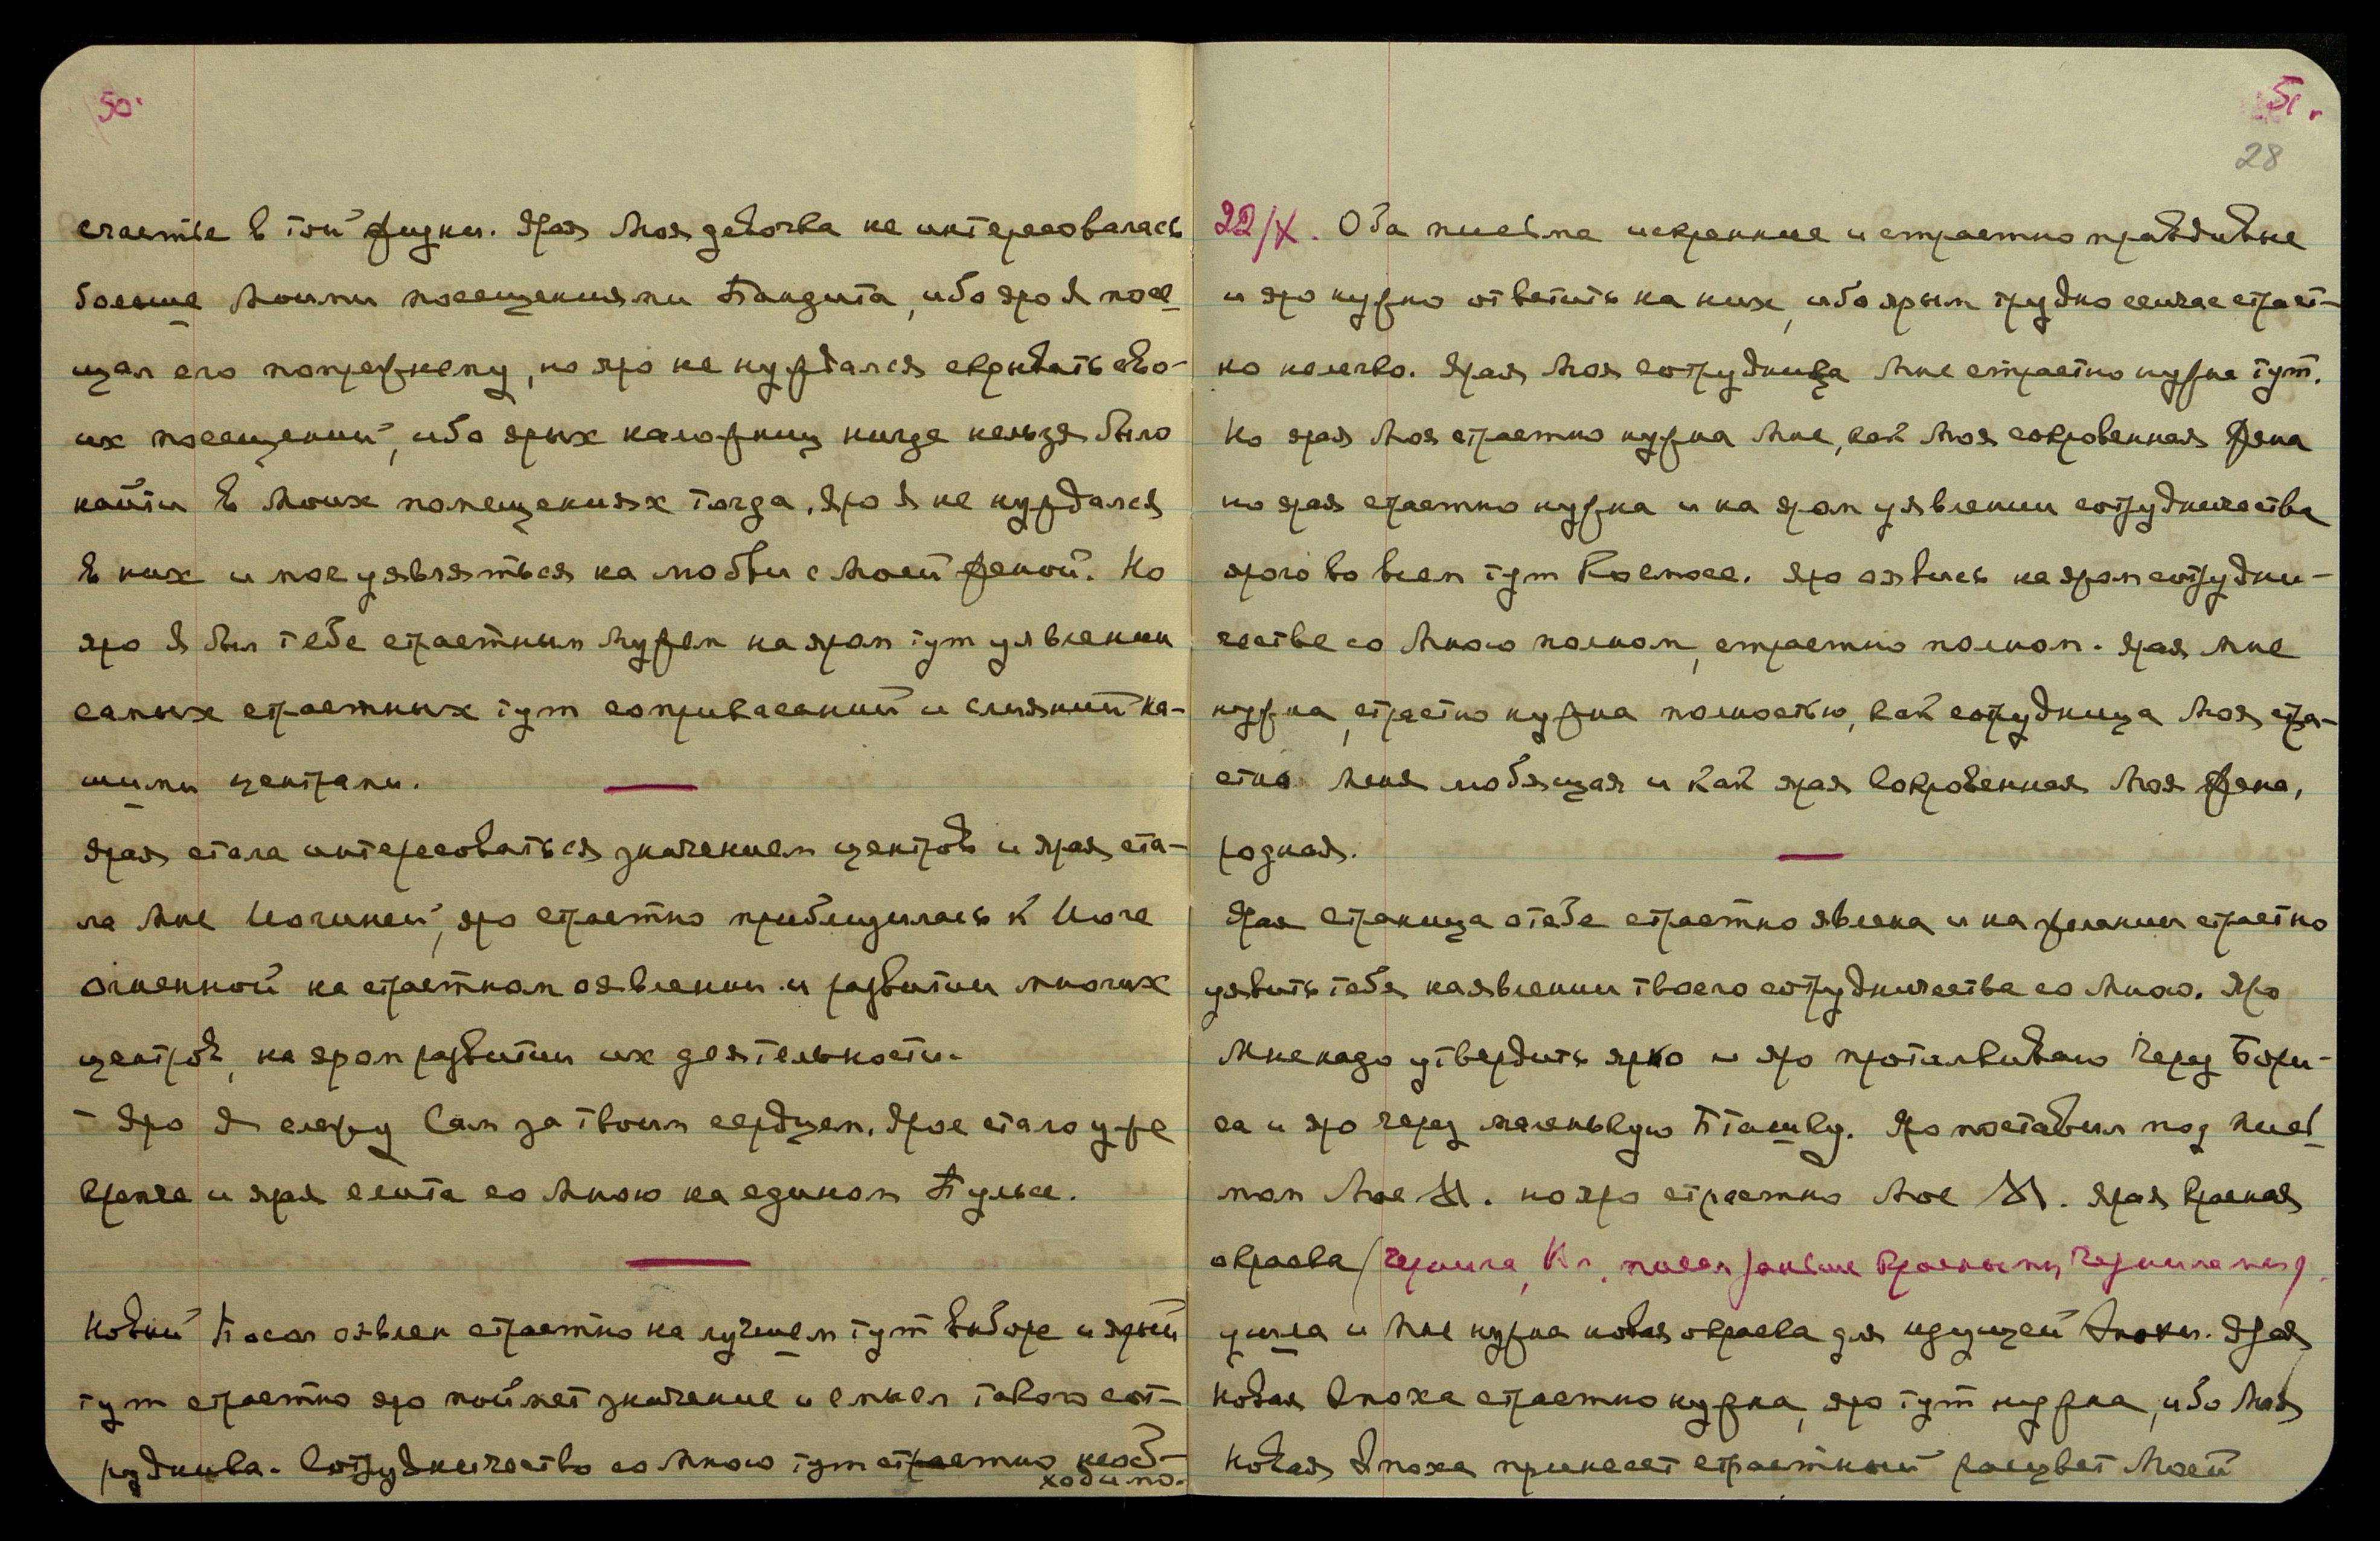 50.
счастье в той жизни. Ярая Моя девочка не интересовалась
больше Моими посещениями Пандита, ибо яро Я посе
щал его попрежнему, но яро не нуждался скрывать сво-
их посещений, ибо ярых наложниц нигде нельзя было
найти в Моих помещениях тогда, яро Я не нуждался
в них и мог уявляться на любви с Моей женой. Но
яро Я был тебе страстным Мужем на яром тут уявлении
самых страстных тут соприкасаний и слияний на-
шими центрами.
Ярая стала интересоваться значением центров и ярая ста-
ла Мне Иогиней, яро страстно приблизилась к Иоге
огненной на страстном оявлении и развитии многих
центров, на яром развитии их деятельности.
- Яро Я слежу Сам за твоим сердцем. Ярое стало уже
крепче и ярая слита со Мною на едином Пульсе.
Новый Посол оявлен страстно на лучшем тут выборе и ярый
тут страстно яро поймет значение и смысл такого сот-
рудника. Сотрудничество со Мною тут страстно необ-
ходимо.
51.
28
22/X. Оба письма искренние и страстно правдивые
и яро нужно ответить на них, ибо ярым трудно сейчас страст-
но нелегко. Ярая Моя сотрудница Мне страстно нужна тут.
Но ярая Моя страстно нужна Мне, как Моя сокровенная Жена
но ярая страстно нужна и на яром уявлении сотрудничества
ярого во всем тут Космосе. Яро оявись на яром сотрудни-
честве со Мною полном, страстно полном. Ярая Мне
нужна, страстно нужна полностью, как сотрудница Моя стра-
стно Меня любящая и как ярая Сокровенная Моя Жена,
родная.
Ярая страница о тебе страстно явлена и на желании страстно
уявить тебя на явлении твоего сотрудничества со Мною. Яро
Мне надо утвердить ярко и яро проталкиваю через Бори-
са и яро через маленькую Пташку. Яро поставил под пись
мом Мое М. но яро страстно Мое М. Ярая Красная
окраска (чернила, Вл. писал раньше красными чернилами)
ушла и Мне нужна новая окраска для идущей Эпохи. Ярая
Новая Эпоха страстно нужна, яро тут нужна, ибо Моя
Новая Эпоха принесет страстный расцвет Моей